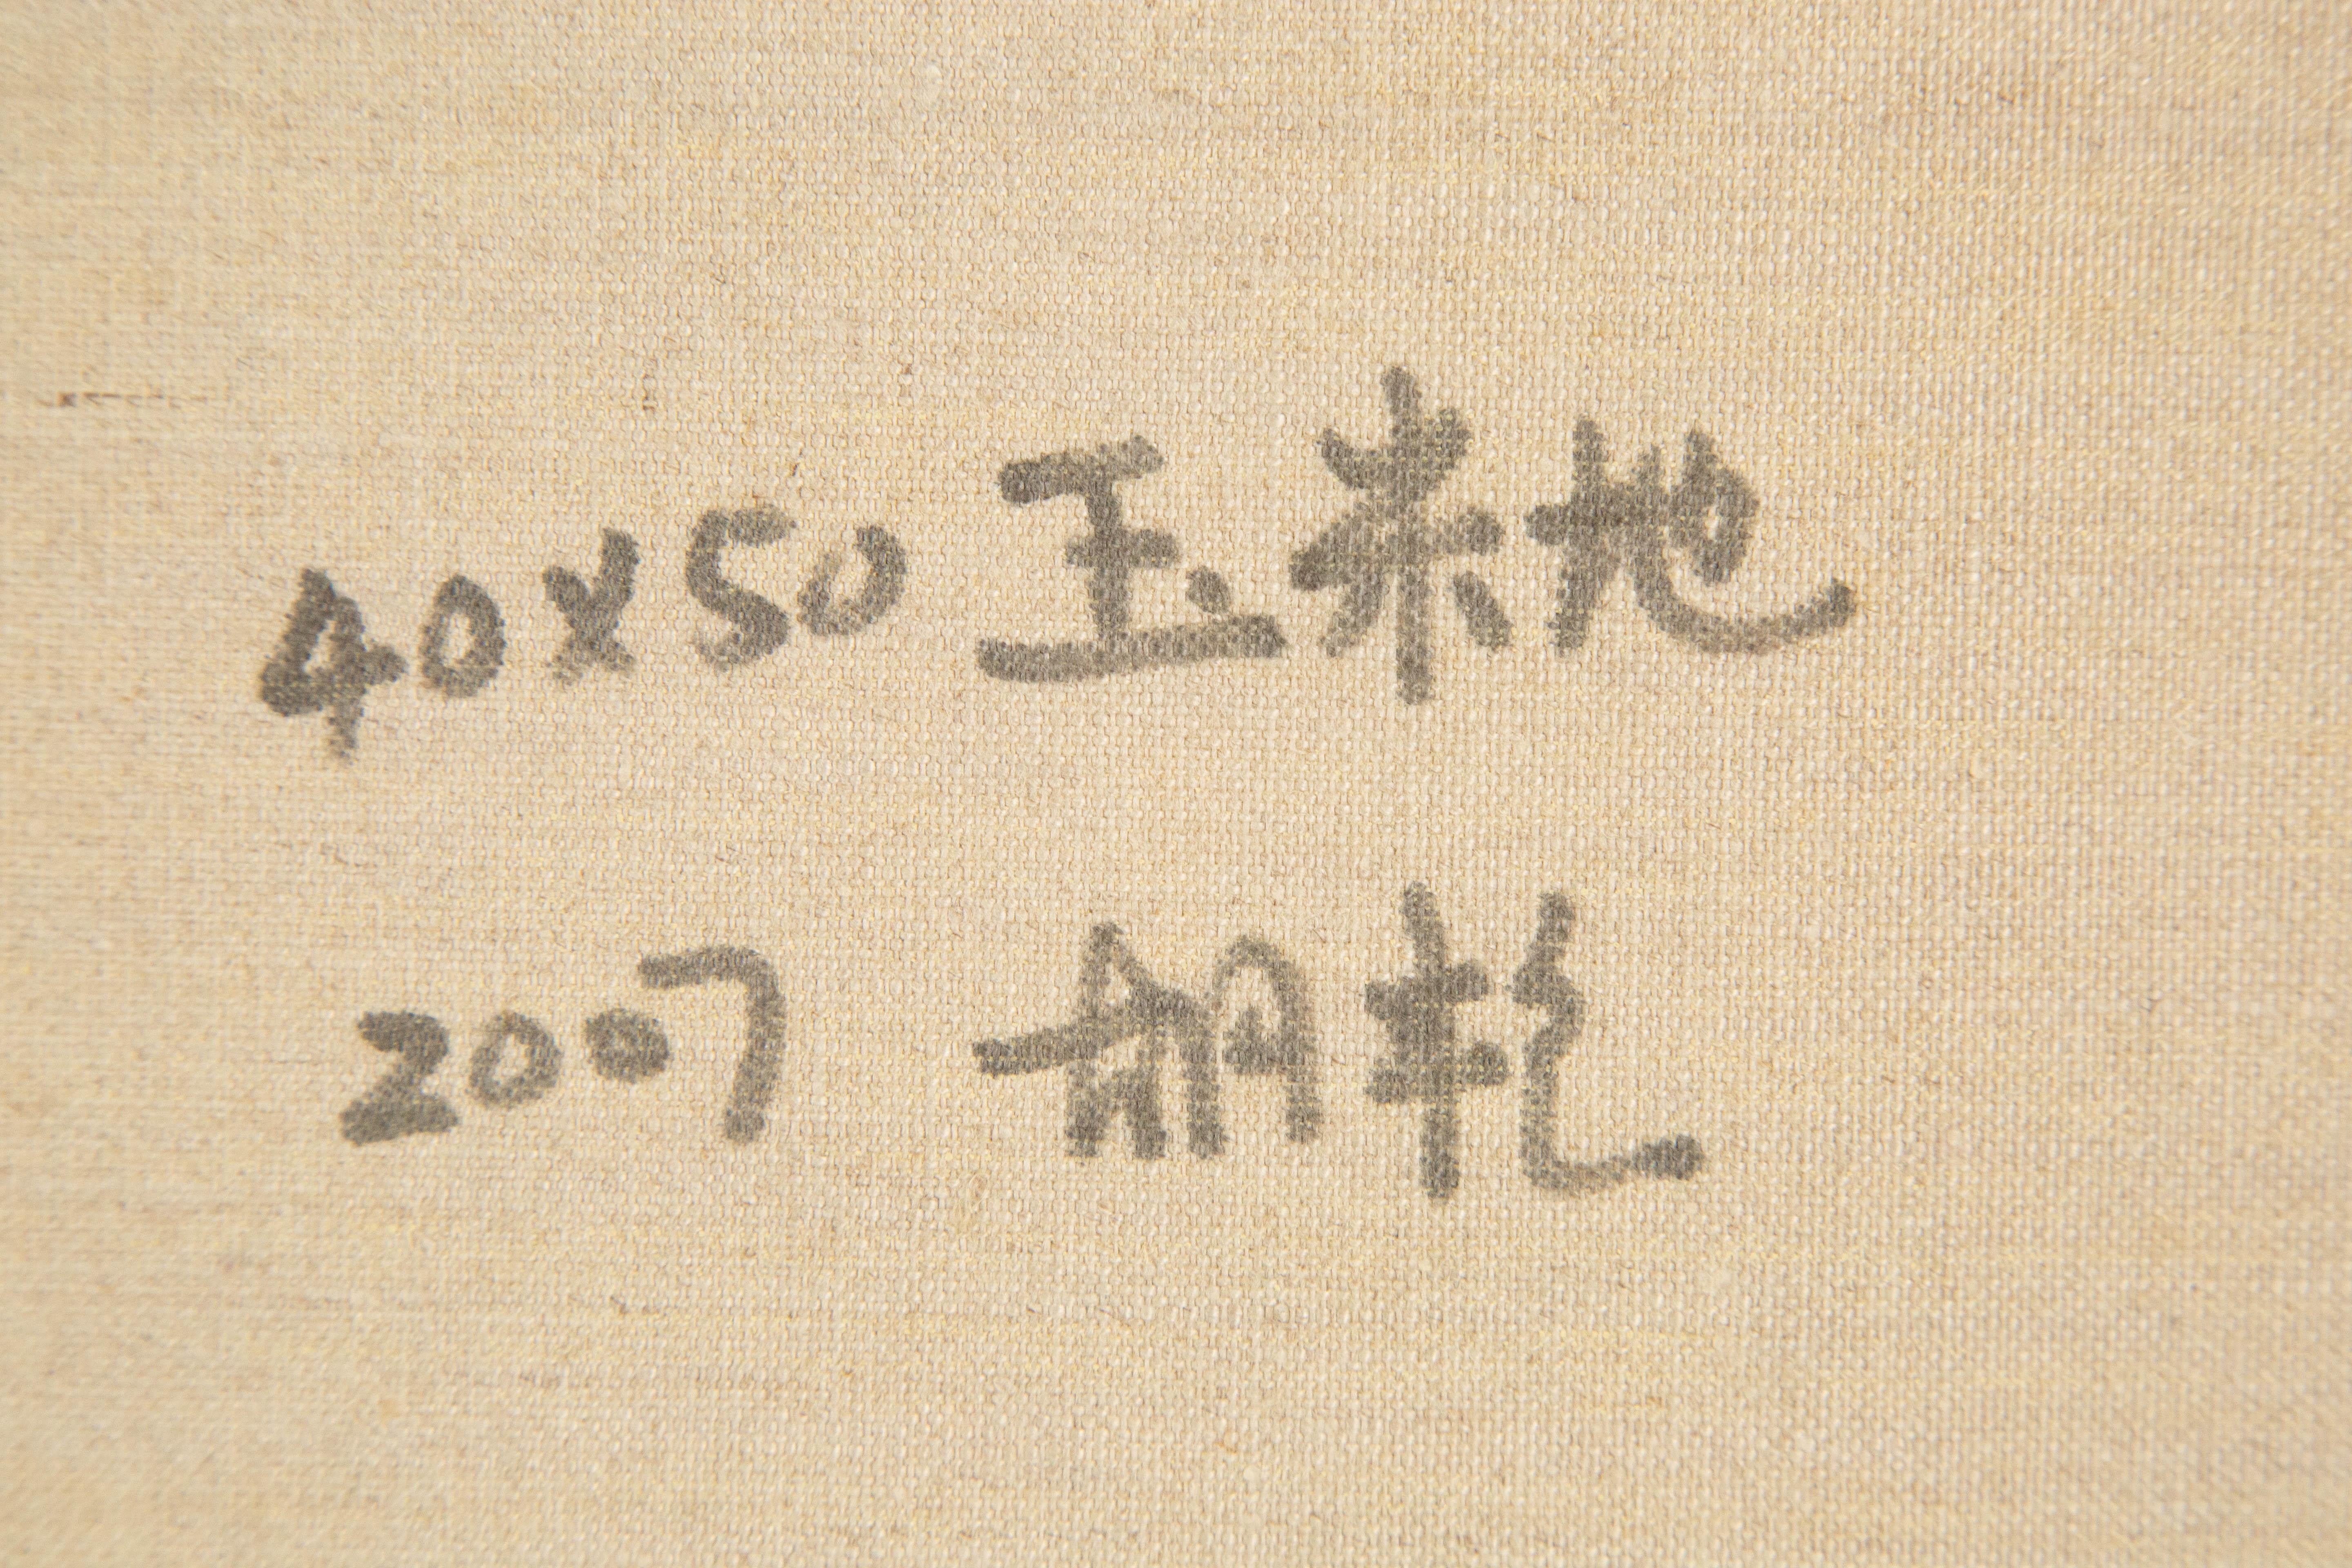 40x50 玉米地
2007